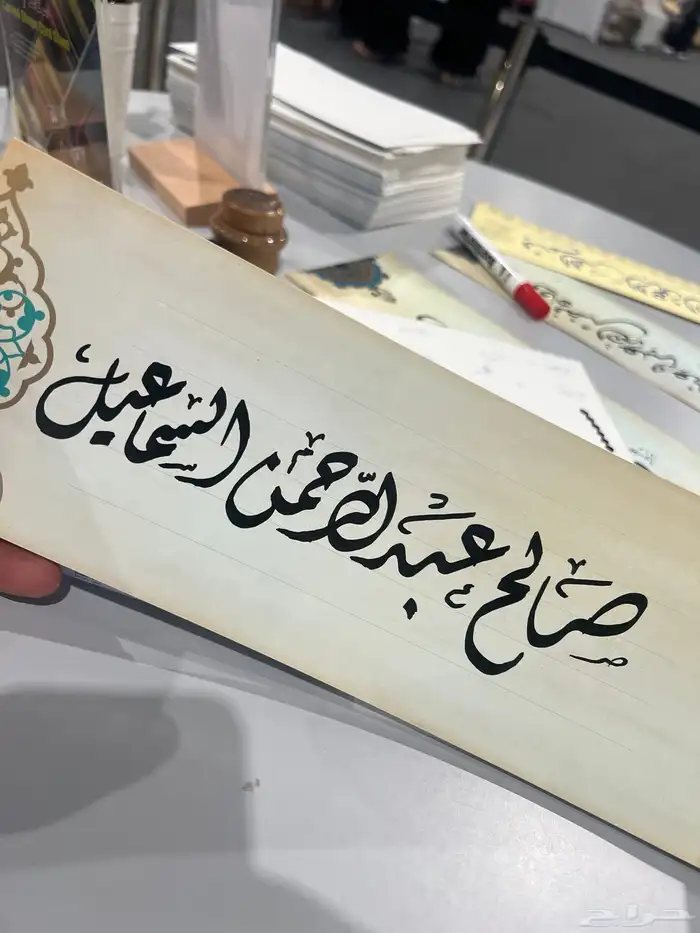 صالح عبدالرحمن السماعيل
حراج